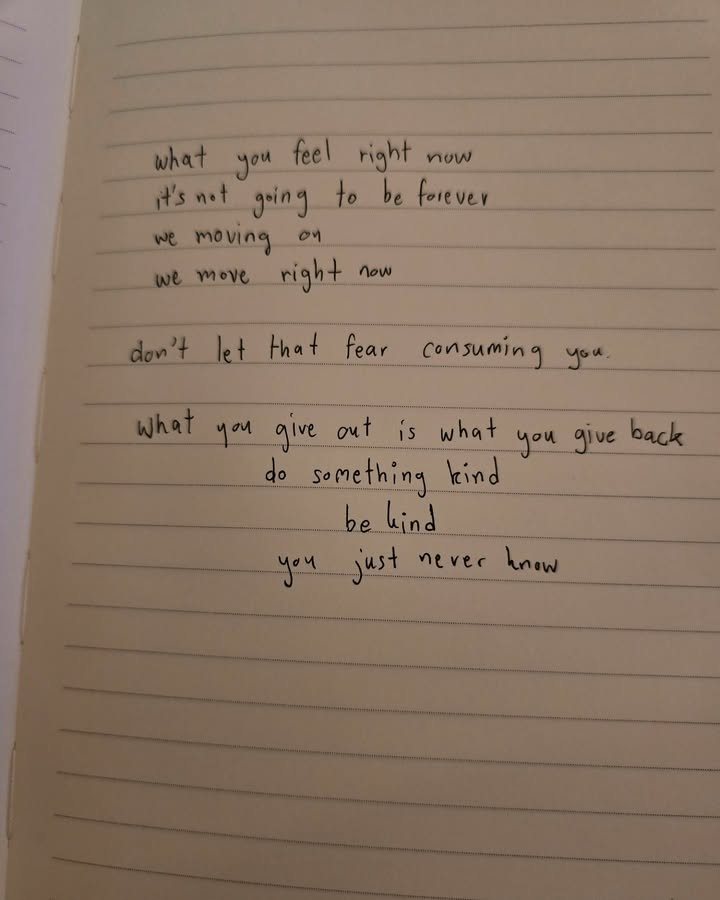 what you feel right now
it's not going to be forever
we moving on
we move right now
don't let that fear consuming you.
What you give out is what you give back
do something kind
be kind
you just never know